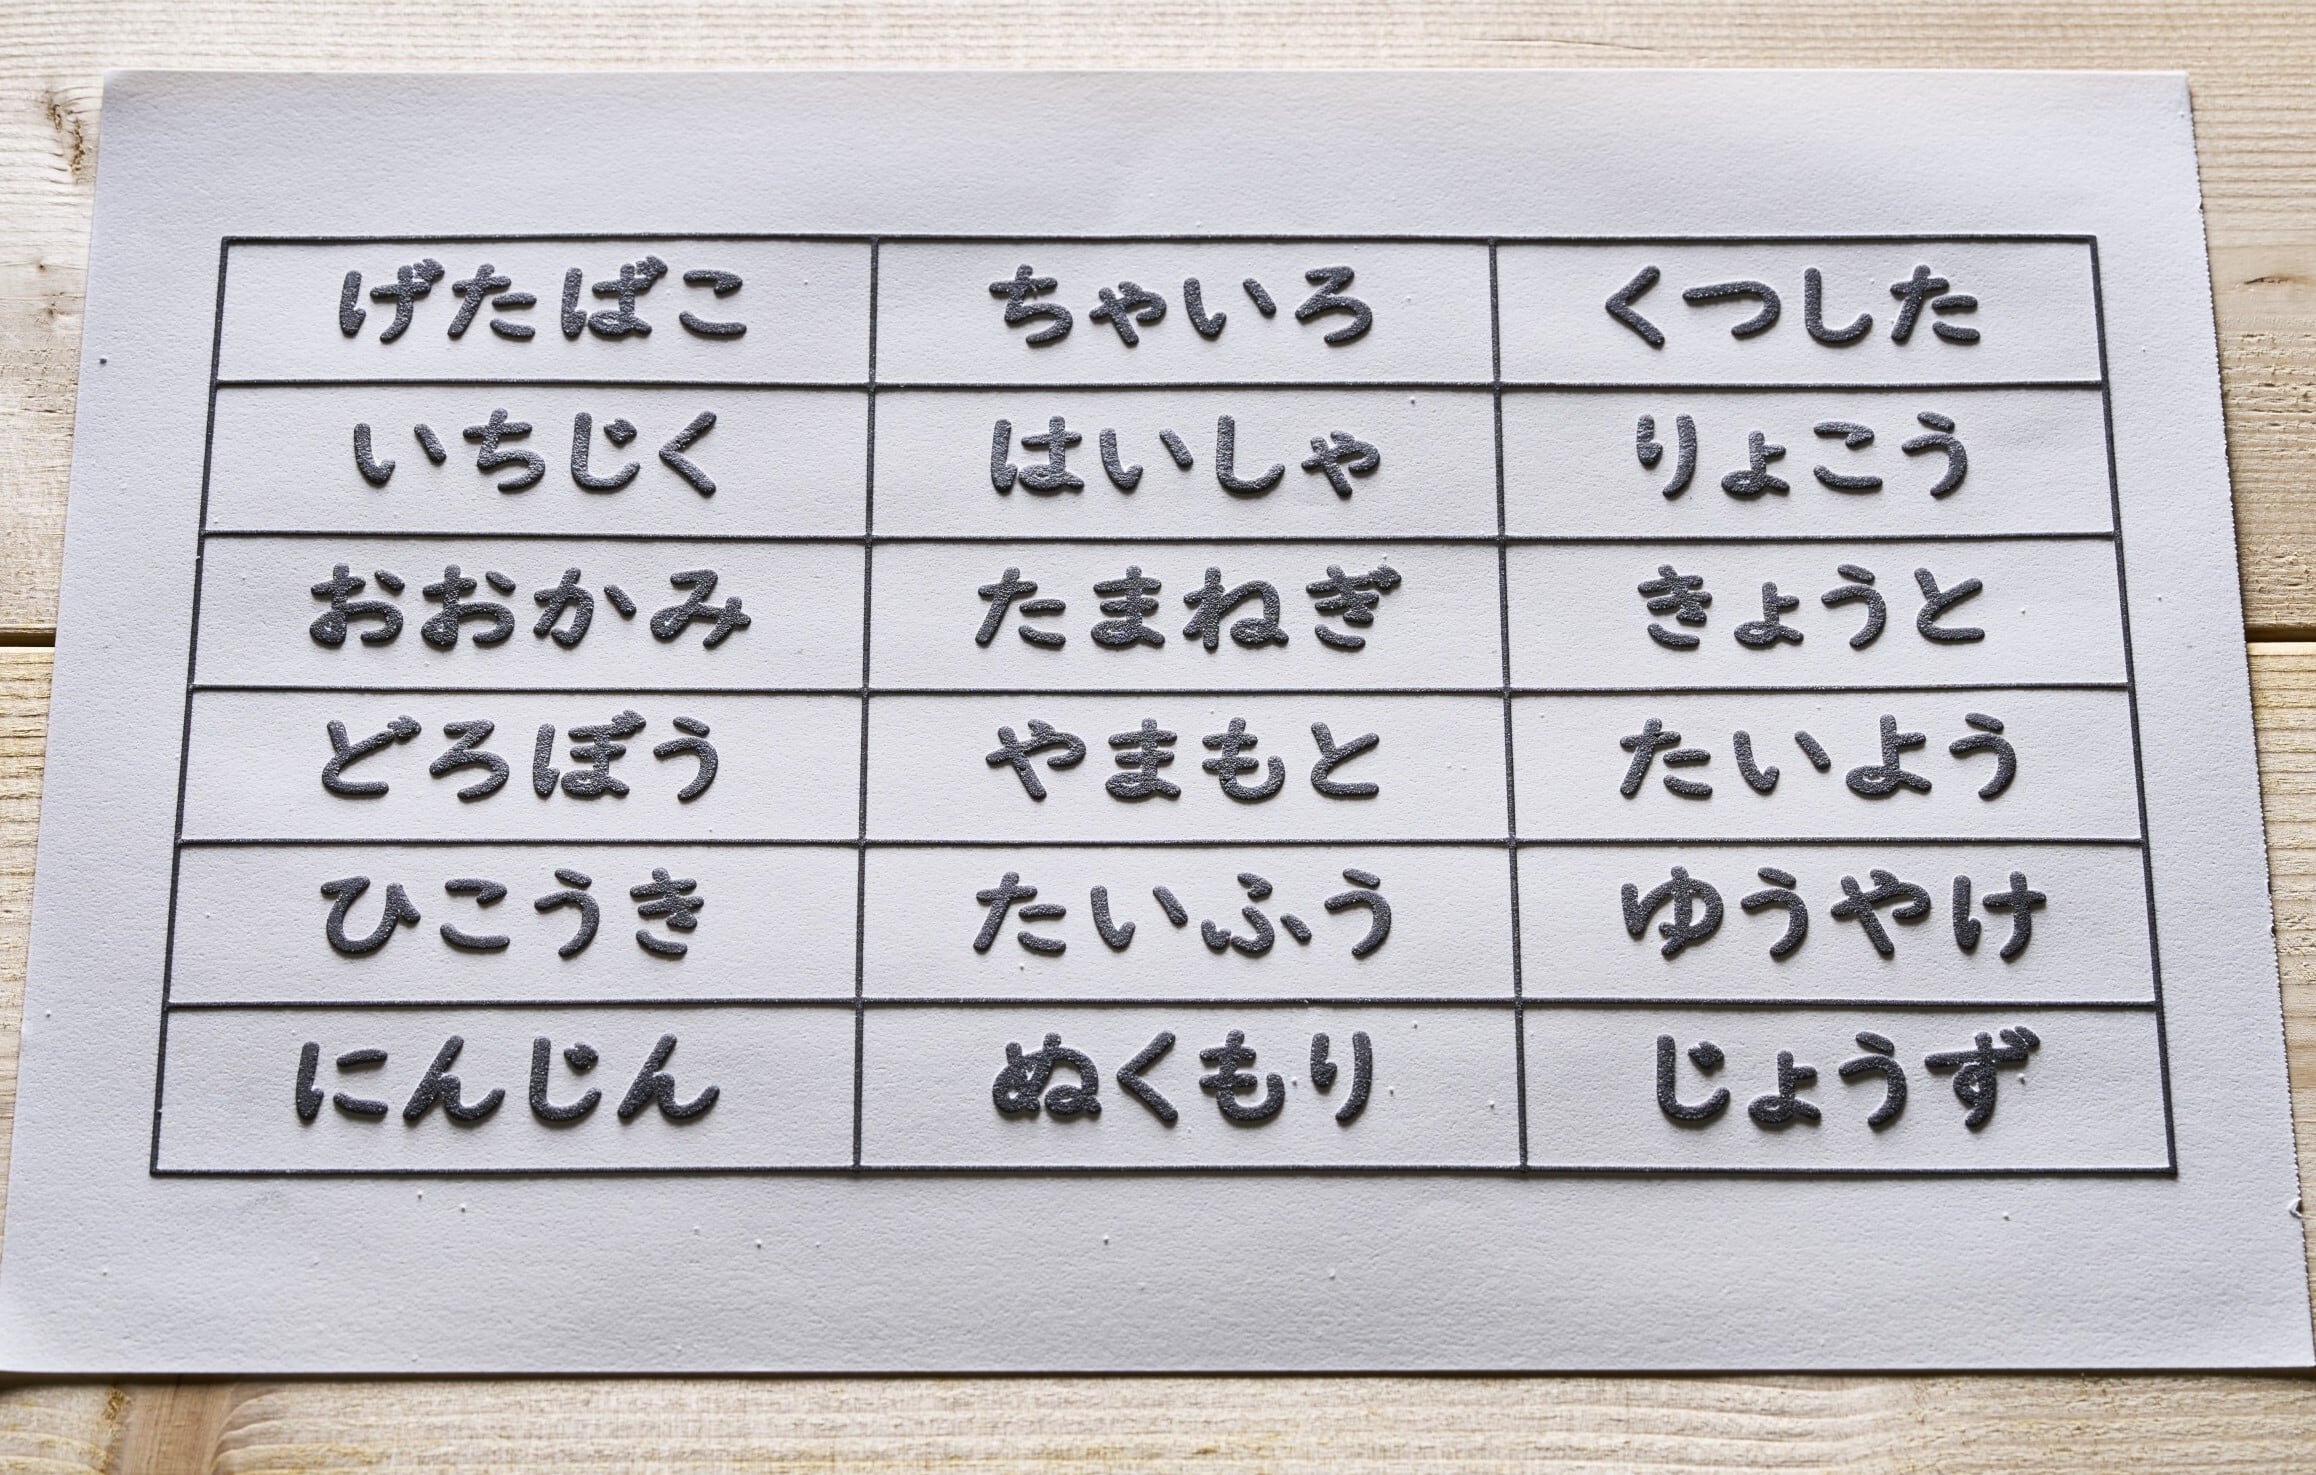 げたばこ ちゃいろ くつした
いちじく はいしゃ りょこう
おおかみ たまねぎ きょうと
どろぼう やまもと たいよう
ひこうき たいふう ゆうやけ
にんじん ぬくもり じょうず